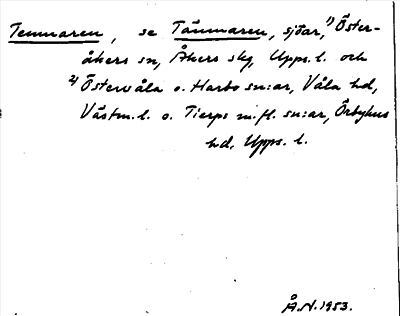 Temmaren, se Tämmaren, sjöar, 1) Öster-
åkers sn, Åkers skg, Upps. l. och
2) Östervåla o. Harbo sn:ar, Våla hd,
Västm. l. o. Tierps m. fl. sn:ar, Örbyhus
hd, Upps. l.
Å.N. 1953.